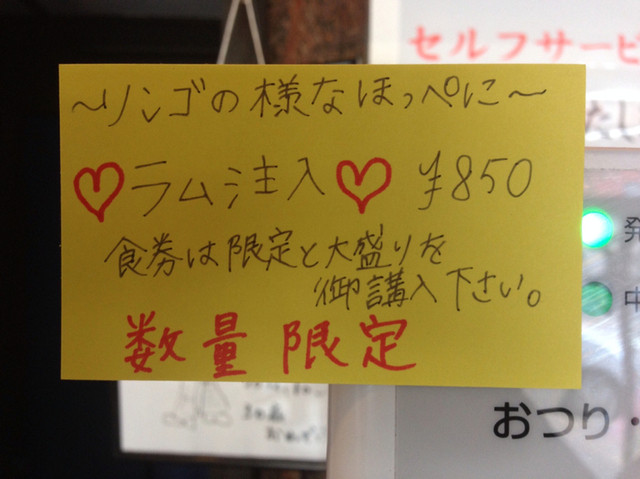 セルフサービ
～リンゴの様なほっぺに～
♡ラム注入♡ ¥850
食券は限定と大盛りを
御講入下さい。
数量限定
おつり・